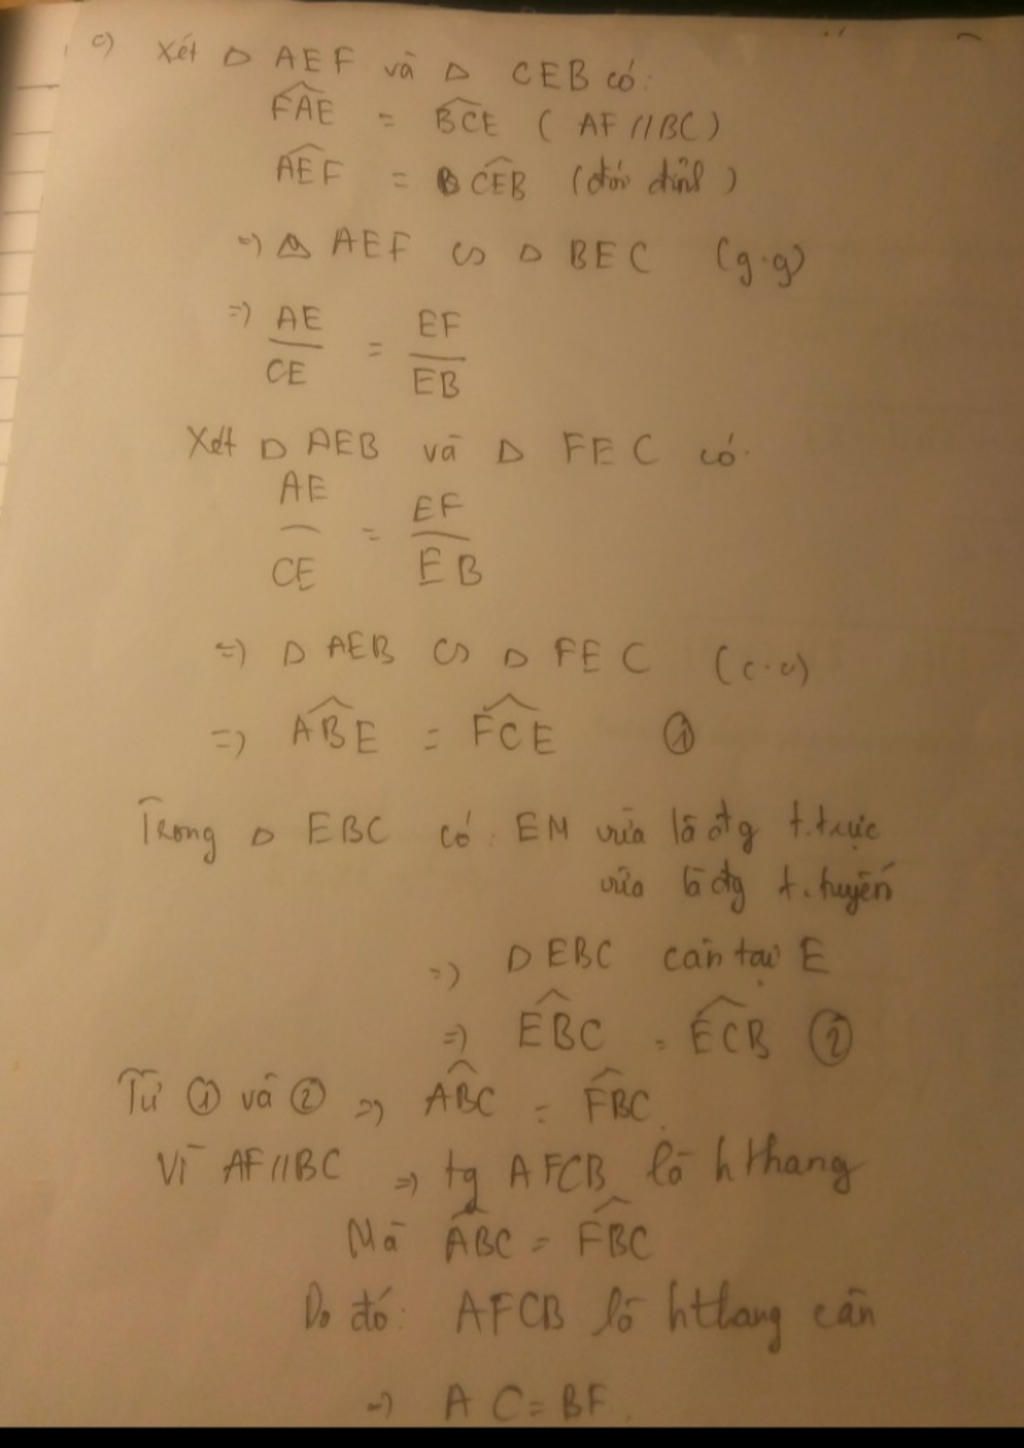 c) Xét Δ AEF và Δ CEB có:
FAE = BCE ( AF // BC )
AEF = CEB (đối đỉnh )
=> Δ AEF ∽ Δ BEC (g.g)
=> AE/CE = EF/EB
Xét Δ AEB và Δ FEC có:
AE/CE = EF/EB
=> Δ AEB ∽ Δ FEC (c.c)
=> ABE = FCE ①
Trong Δ EBC có: EM vừa là đtg t.trực
vừa là đtg t.tuyến
=> Δ EBC cân tại E
=> EBC = ECB ②
Từ ① và ② => ABC = FBC.
Vì AF // BC => tg AFCB là hthang
Mà ABC = FBC
Do đó: AFCB là hthang cân
=> AC = BF.